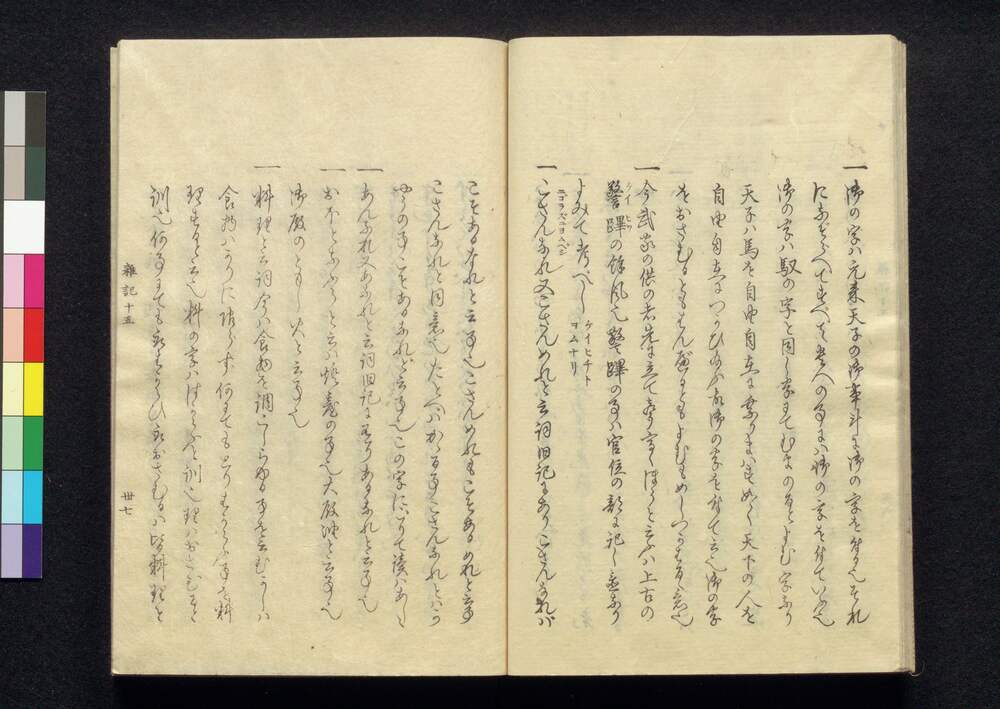 一 御の字ハ元来天子の御事斗に御の字を付る也それ
になぞらへてすべて貴人の事にハ御の字を付ていふ也
御の字ハ馭の字と同し字にてむまのるとよむ字なり
天子ハ馬を自由自在に乗り玉ハすめらく天下の人を
自由自在につかひ給ふ故御の字を付て云也御の字
をおさむるともすべるともよむもめしつかはるゝ意也
一 今武家の供の者先に立て声高くはらと云ふハ上古の
警蹕の餘風也警蹕の事ハ官位の部に記し置なり
ケイヒツ
ニゴラズニヨムベシ
よみて考べし ケイヒチト
ヨムナリ
一 ござんなれ又ござんめれと云詞旧記にありござんなれハ
こそあるなれと云事也こざんめれもこそあるめれと云事
こさんなれと同意也たとへハかゝる事こさんなれとハか
やうの事こそあるなれと云事也この字にごりて読ハあしゝ
一 あんなれ又あなれと云詞旧記に有りあるなれと云事也
一 おほとなふらと云ハ燈臺の事也大殿油と云事也
御殿のともし火と云事也
一 料理と云詞今ハ食物を調こしらゆる事を云むかしハ
食物ハかりに限らず何にても とりはからふ事を料
理するといふ也料の字ハはかると訓也理ハおさむると
訓也何事にても取はからひ取おさむるハ皆料理と
雑記十五
卅七